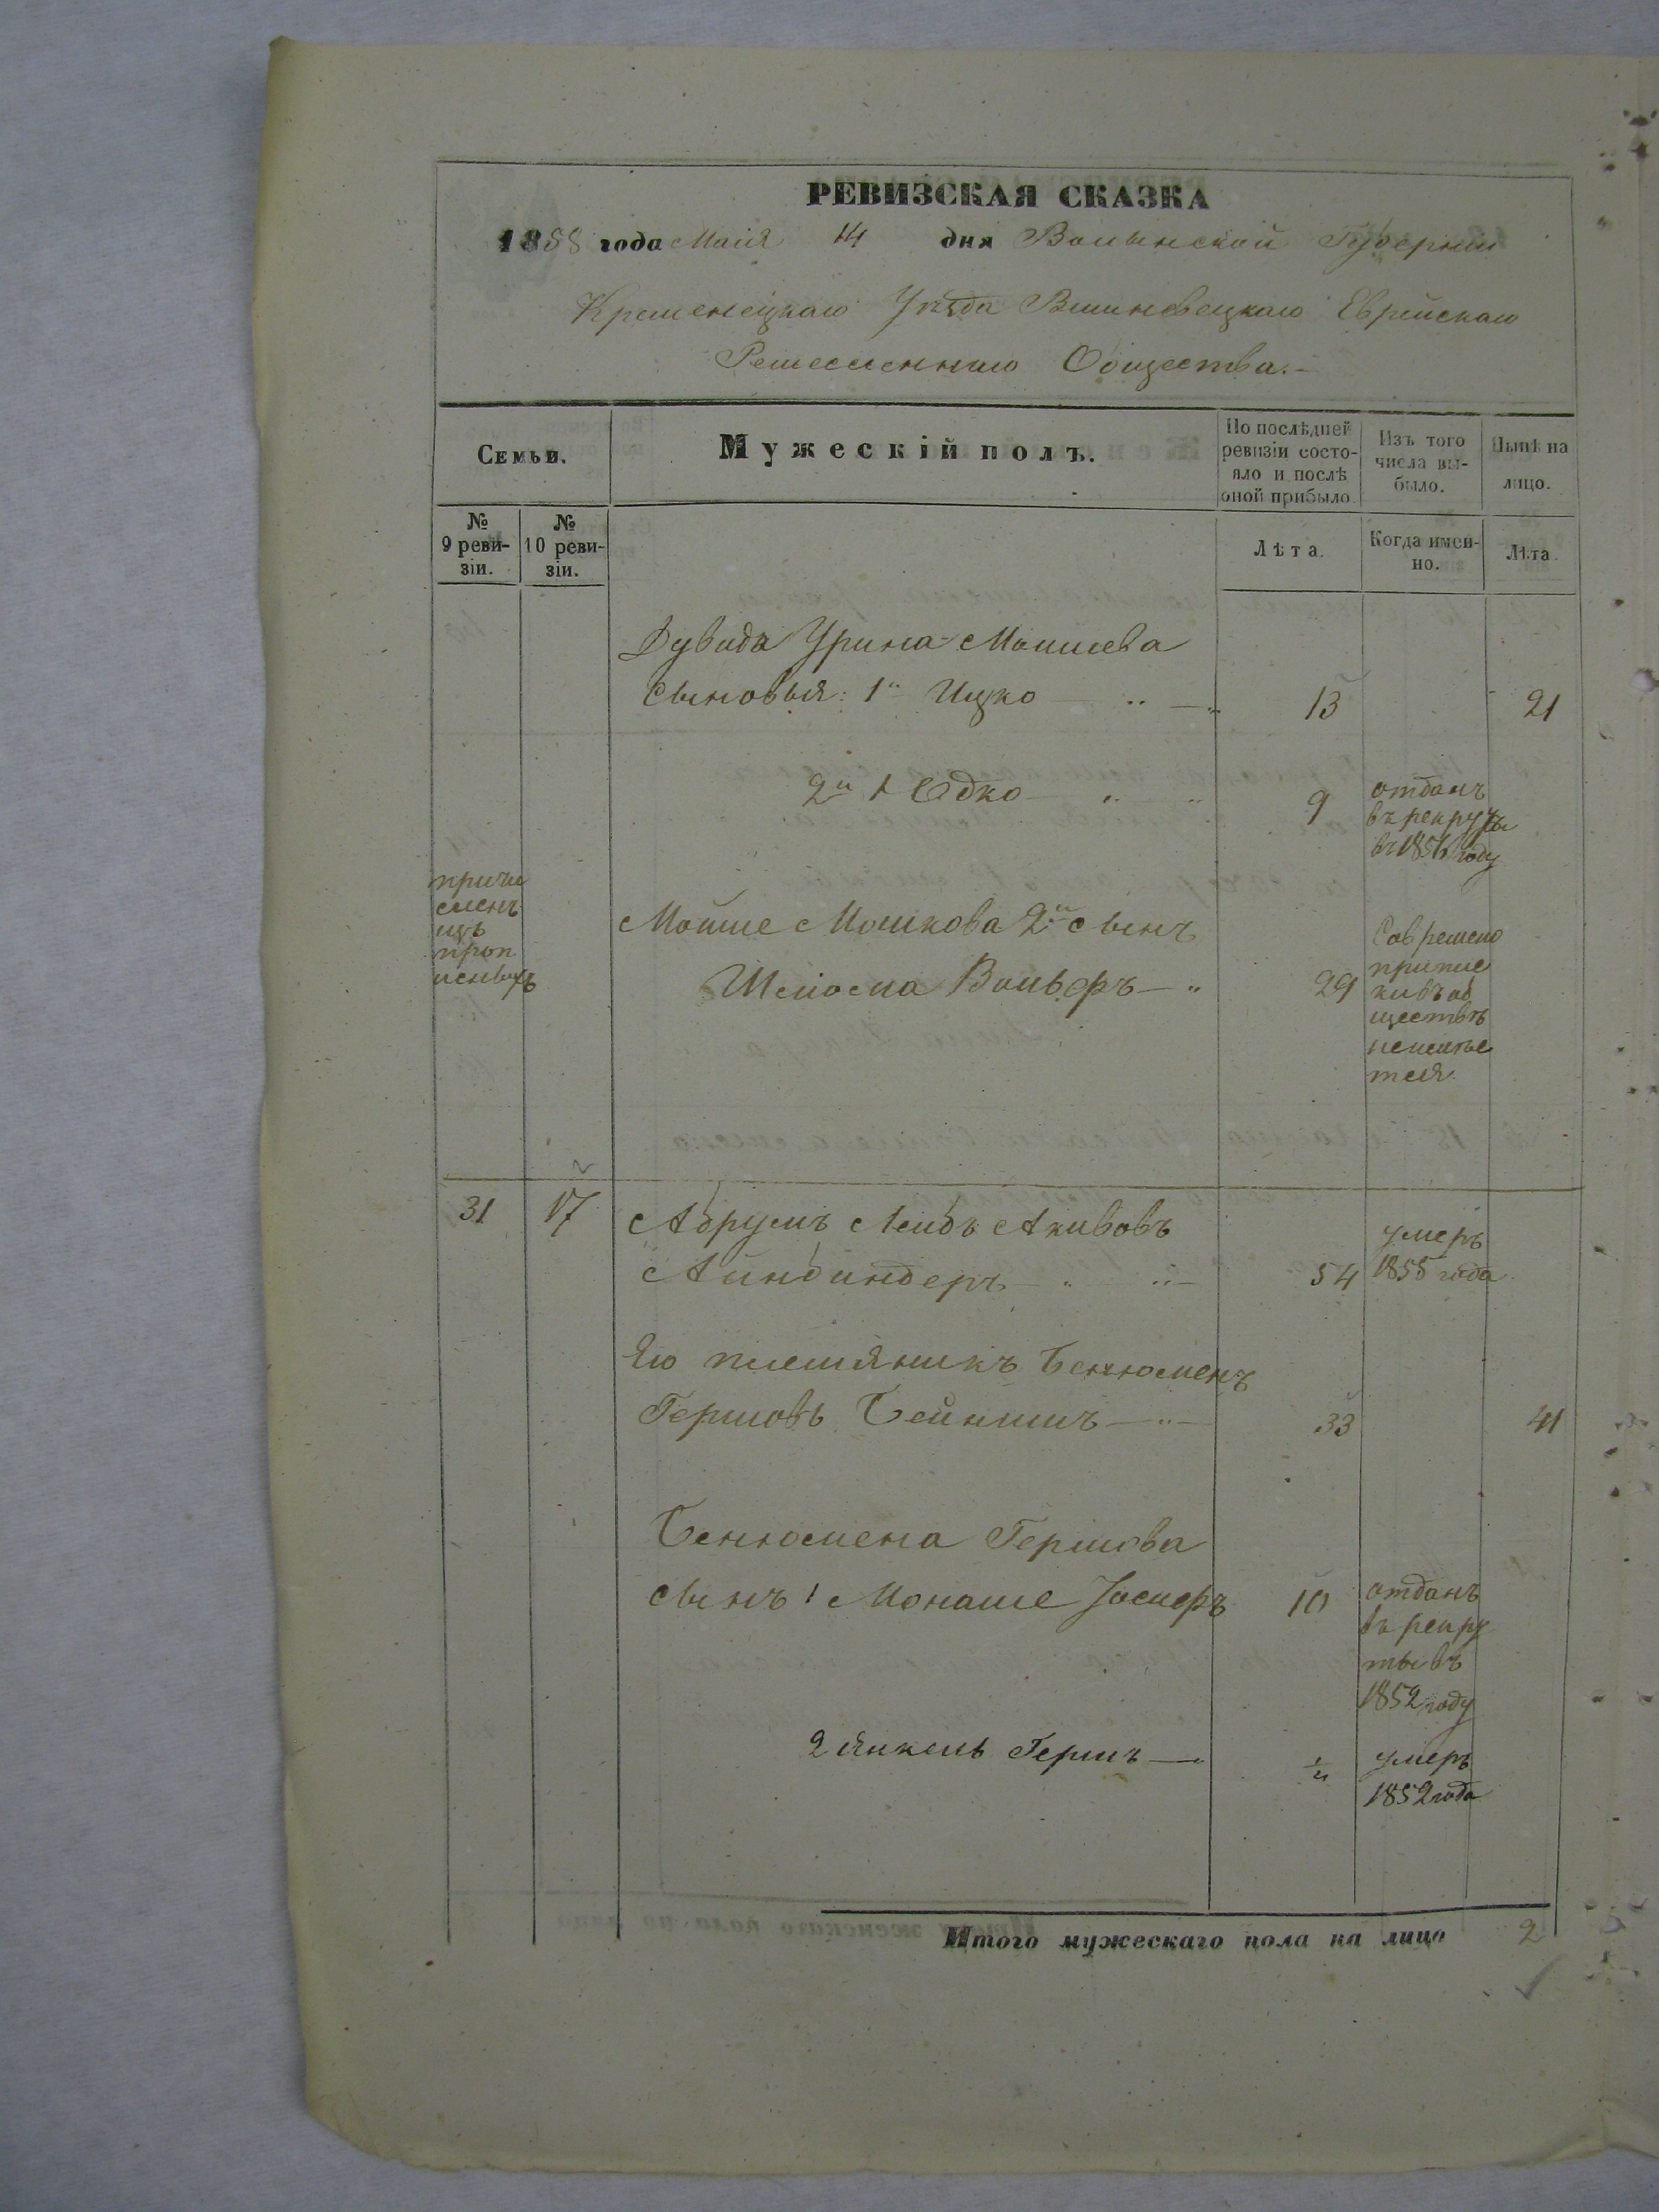 РЕВИЗСКАЯ СКАЗКА
1858 года Маія 14 дня Волынской Губерніи
Кременецкаго Уѣзда Вишневецкаго Еврейскаго
Ремесленнаго Общества.
Семьи.
Мужескій полъ.
По послѣдней ревизіи состояло и послѣ оной прибыло.
Изъ того числа выбыло.
Нынѣ на лицо.
№ 9 ревизіи.
№ 10 ревизіи.
Лѣта.
Когда именно.
Лѣта.
Дувида Урина Мошиева
Сыновья: 1й Ицко 13 21
2й Юдко 9
отданъ
въ рекруты
въ 1856 году
причи
сленъ
изъ
проп
исныхъ
Мойше Мошкова 2й сынъ
Шлиома Вольфъ 29
Современо
припис
ки въ об
ществѣ
неимѣе
тся
31 17 Абрумъ Лейбъ Акивовъ
Айнбиндеръ 54
умеръ
1855 года
Его племяникъ Бенюменъ
Гершовъ Бейнишъ 33 41
Бенюмена Гершова
сынъ 1 Монаше Іосифъ 10
отданъ
въ рекру
ты въ
1852 году
2 Янкель Гершъ ½
умеръ
1852 года
Итого мужескаго пола на лицо 2